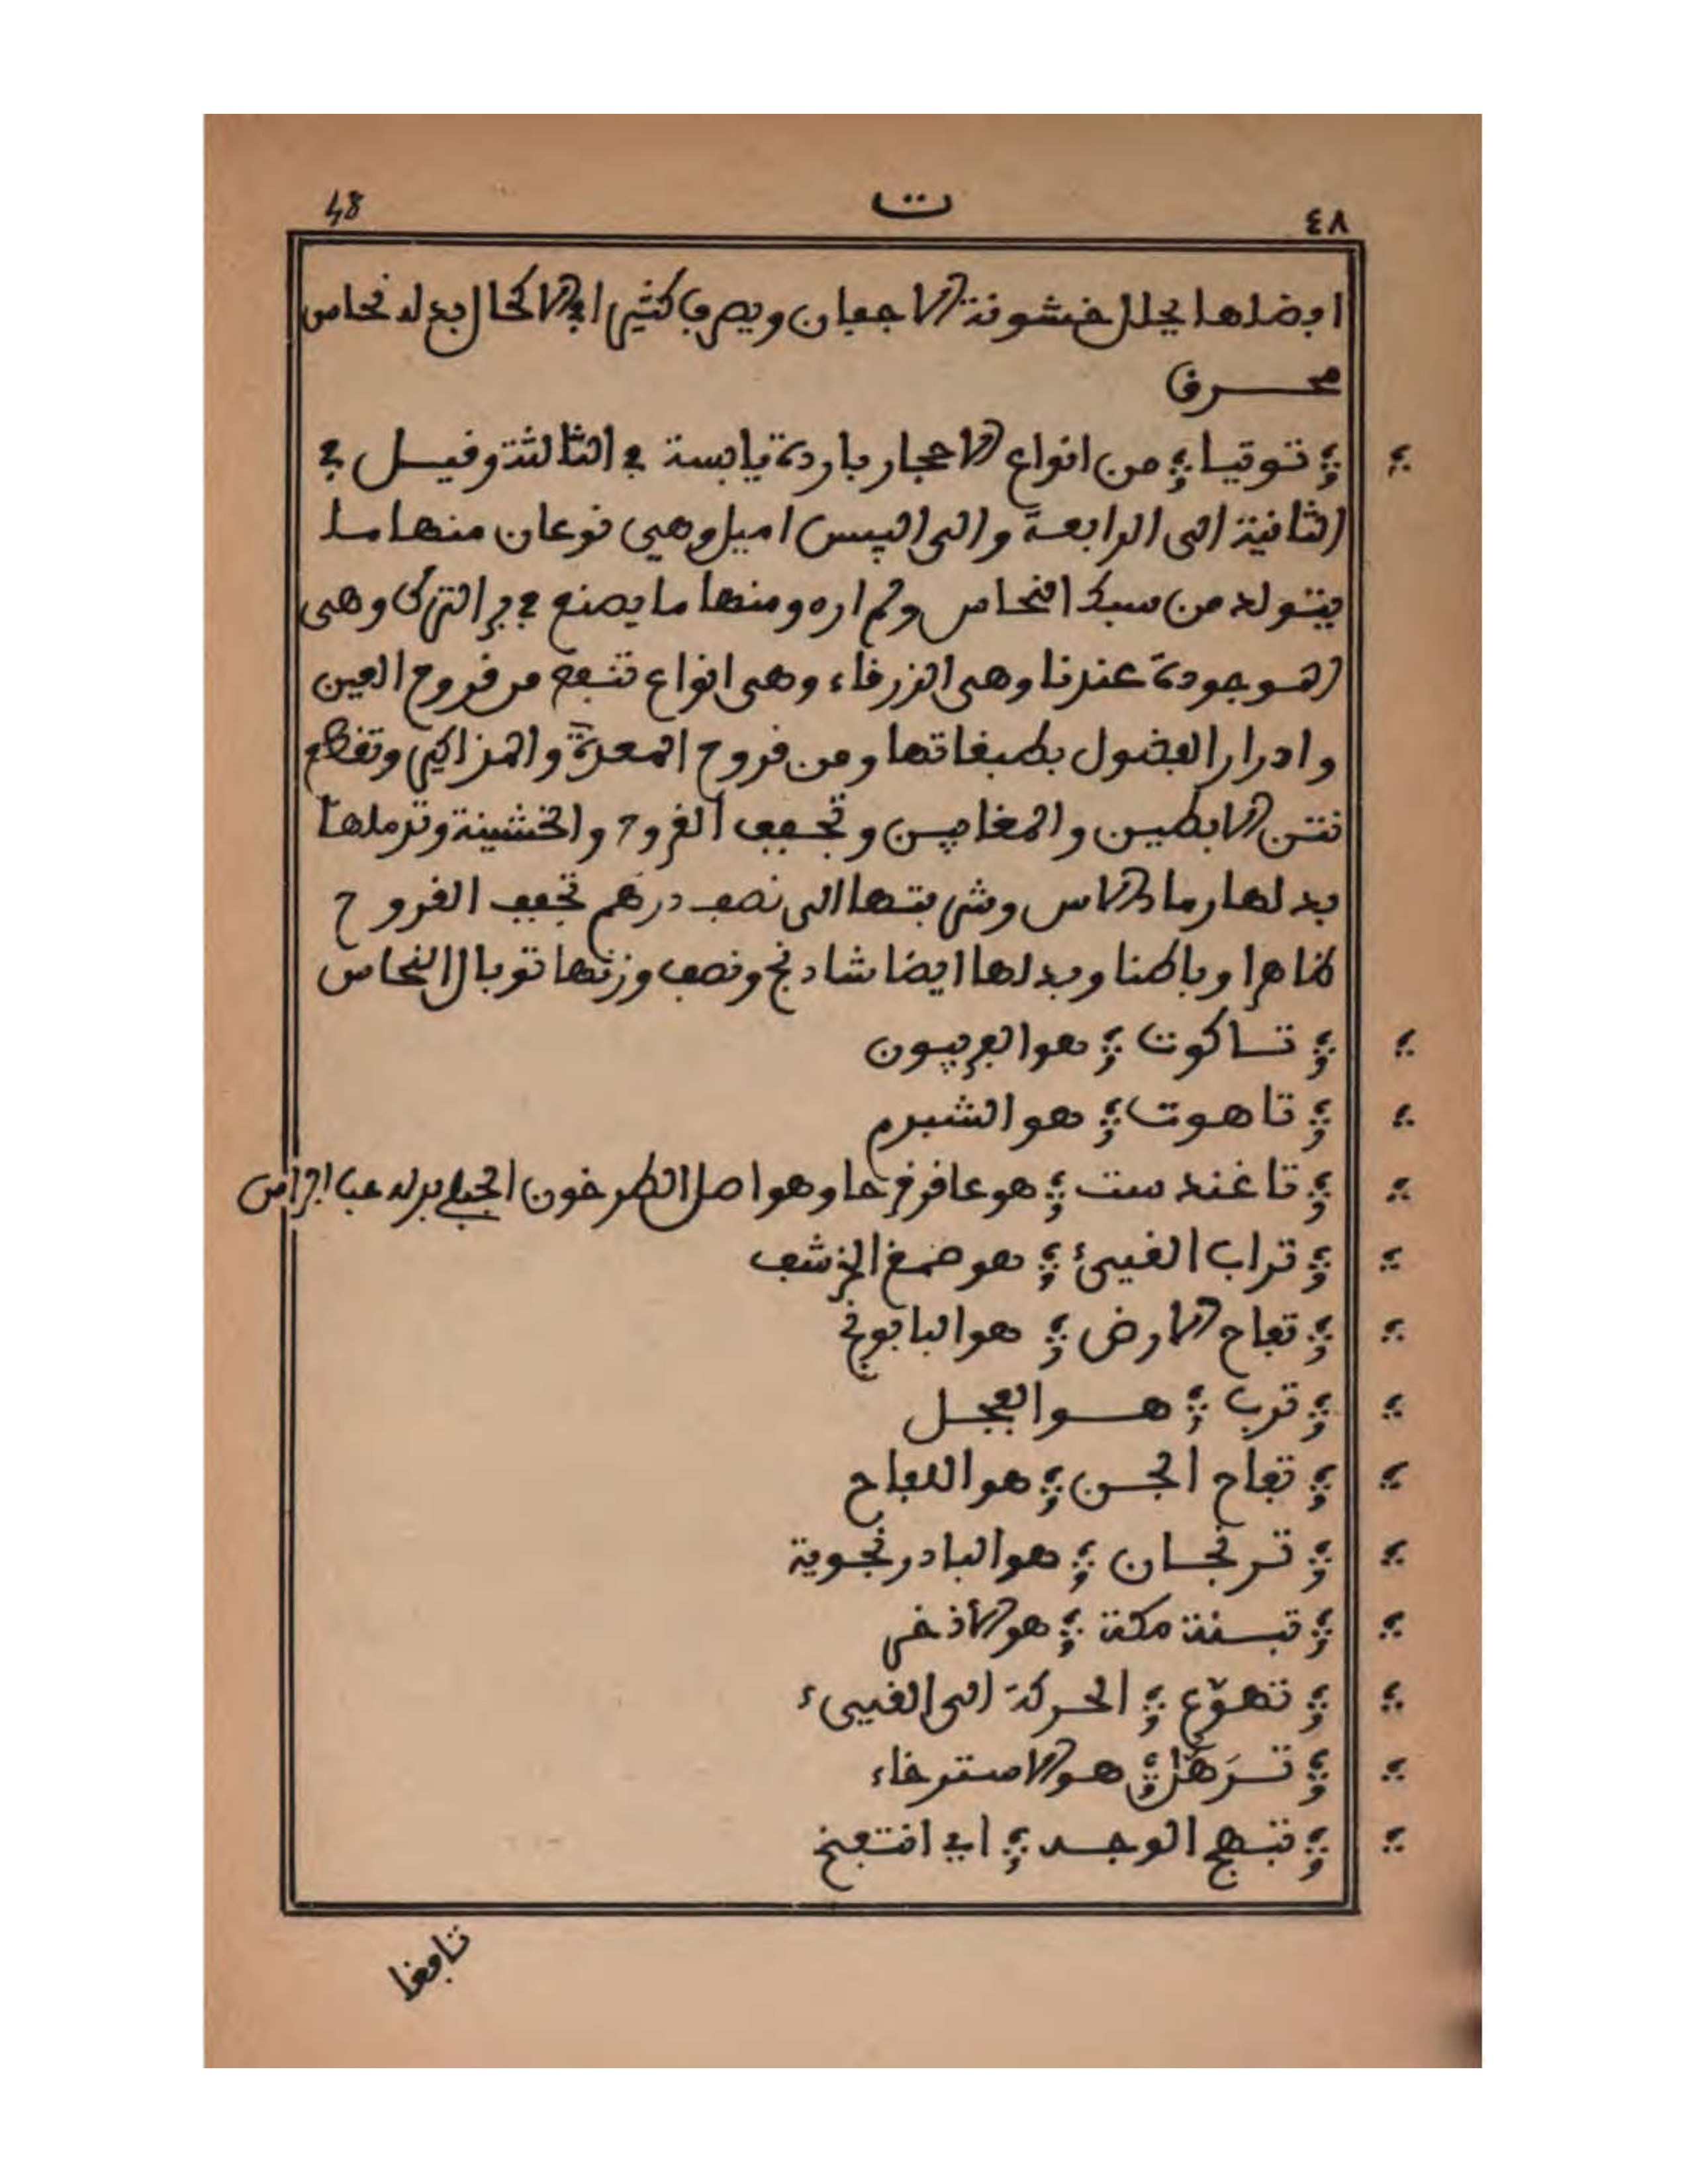 ٤٨ ت 48
افضلها يحلل خشونة الاجفان ويصرف كثيرا في الاكحال بدله نحاس
محرق
توتيا من انواع الاحجار باردة يابسة في الثالثة وقيل في
الثانية الى الرابعة والى اليبس اميل وهي نوعان منها ما
يتولد من سبك النحاس ولم اره ومنها ما يصنع في بر الترك وهي
الموجودة عندنا وهي الزرقاء وهي انواع تنفع من قروح العين
وادرار الفضول بطبقاتها ومن قروح المعدة والمذاكير وتقطع
نتن الابطين والمغابن وتجفف القروح والخشينة وترملها
بدلها رماد الاس وشربتها الى نصف درهم تجفف القروح
ظاهرا وباطنا وبدلها ايضا شادنج ونصف وزنها توبال النحاس
تاكوت هو الفربيون
تاهوت هو الشبرم
تاغندست هو عاقرقرحا وهو اصل الطرخون الجبلي بدله حب الراس
تراب القيئ هو ضمغ الخرشف
تفاح الارض هو البابونج
ترب هو الفجل
تفاح الجن هو اللفاح
ترنجان هو البادرنجوية
تبنة مكة هو الأذخر
تهوّع الحركة الى القيىء
تَرَهّل هو الاسترخاء
تبهج الوجه اي انتفخ
تافغا